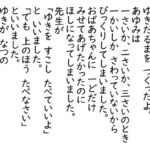 ゆきだるまを つくったよ。
あゆみは
一さいか、二さいか、三さいのとき
一かいしか さわっていないから
びっくりしてしまいました。
おばあちゃんに 一どだけ
みせてあげたかったのに
ほしになってしまいました。
先生が
「ゆきを すこし たべていいよ」
といいました。
「でも 上のほう たべなさい」
といいました。
ゆきが なつの